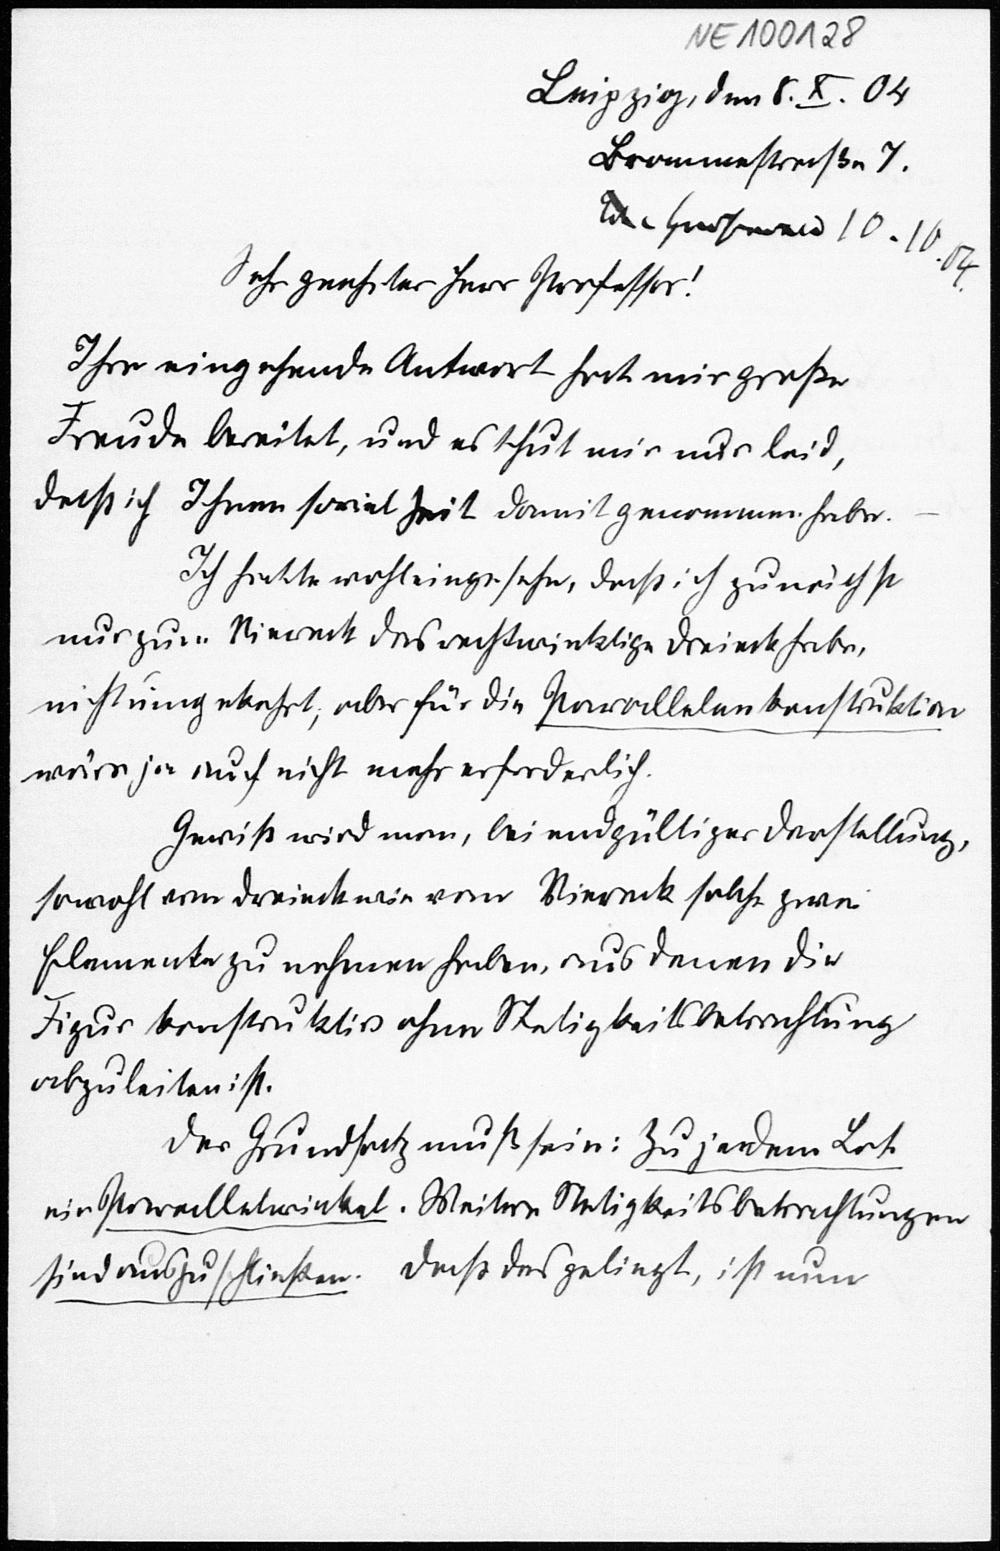 NE100128
Leipzig, den 8. X. 04
Brommestraße 7.
10.10.04.
Sehr geehrter Herr Professor!
Ihre eingehende Antwort hat mir große
Freude bereitet, und es thut mir nur leid,
daß ich Ihnen soviel Zeit damit genommen habe. —
Ich hatte wohl eingesehn, daß ich zunächst
nur zum Viereck das rechtwinklige Dreieck habe,
nicht umgekehrt; aber für die Parallelenkonstruktion
wäre ja auch nicht mehr erforderlich.
Gewiß wird man, bei endgültiger Darstellung,
sowohl vom Dreieck wie vom Viereck solche zwei
Elemente zu nehmen haben, aus denen die
Figur konstruktiv ohne Stetigkeitsbetrachtung
abzuleiten ist.
Der Grundsatz muß sein: Zu jedem Lot
ein Parallelwinkel. Weitere Stetigkeitsbetrachtungen
sind auszuschließen. Daß das gelingt, ist nun